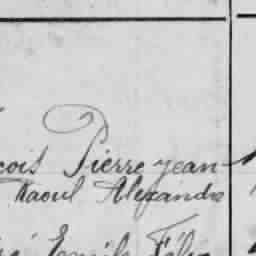 cois Pierre jean
Raoul Alexandre
Emile Félix